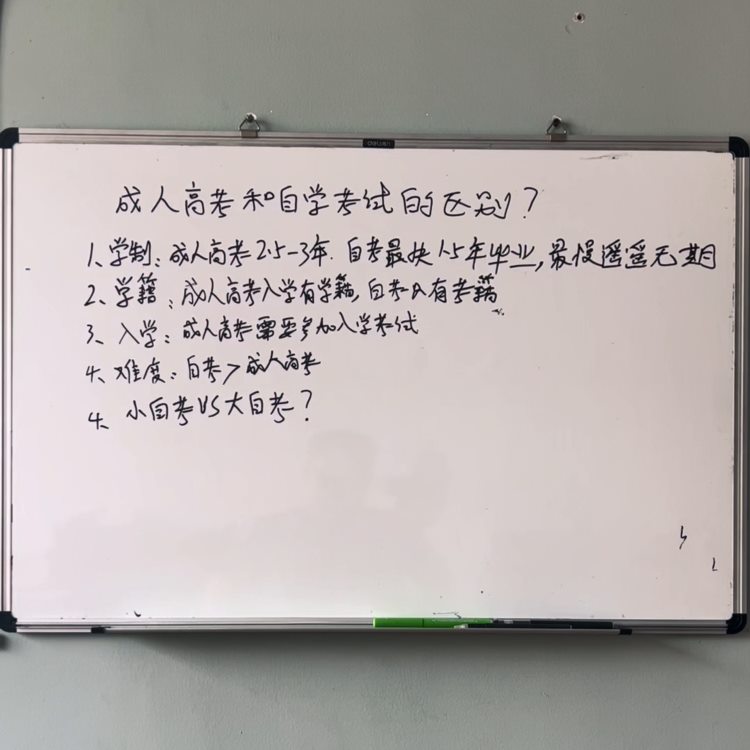 deli
成人高考和自学考试的区别?
1、学制:成人高考2.5-3年.自考最快1.5年毕业,最慢遥遥无期
2、学籍:成人高考入学有学籍,自考只有考籍
3、入学:成人高考需要参加入学考试
4、难度:自考>成人高考
4、小自考VS大自考?